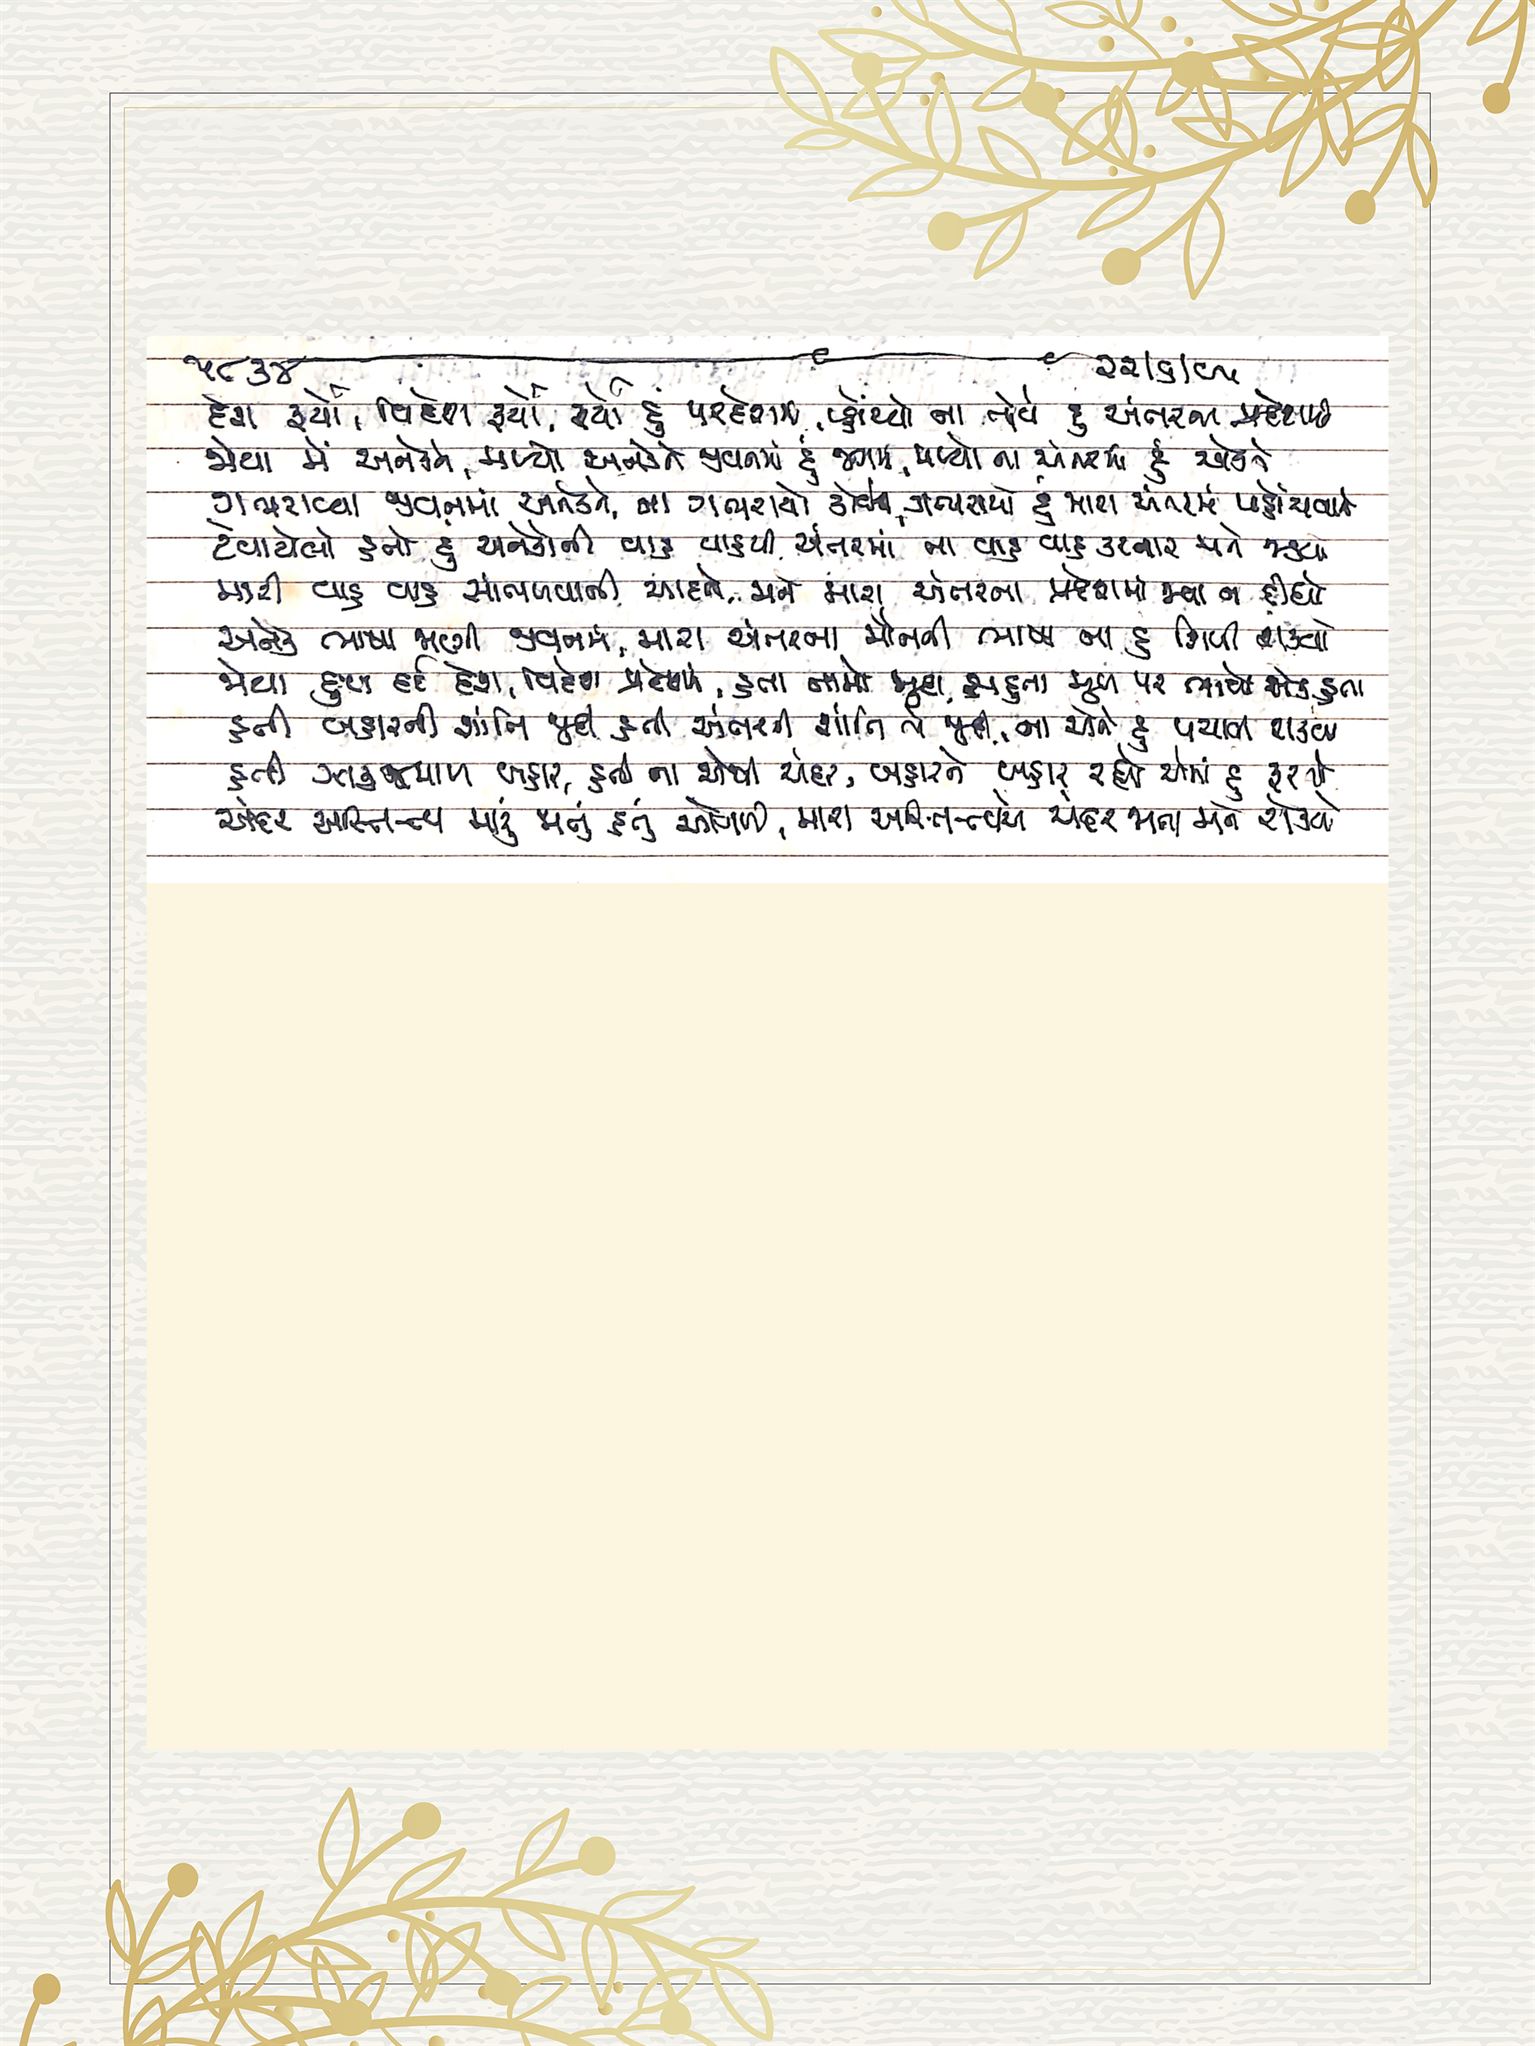 ૫૮૩૪ ૨૨/૬/૯૫
દેશ ફર્યો, વિદેશ ફર્યો, ફર્યો હું પરદેશમાં, પ્હોંચ્યો ના તોયે હું અંતરના પ્રદેશમાં
જોયા મેં અનેકને, મળ્યો અનેકને જીવનમાં હું જગમાં, મળ્યો ના અંતરમાં હું એકને
ગભરાવ્યા જીવનમાં અનેકને, ના ગભરાયો કોઈથી, ગભરાયો હું મારા અંતરમાં પહોંચવાને
ટેવાયેલો હતો હું અનેકોની વાહ વાહથી અંતરમાં ના વાહ વાહ કરનાર મને જડયો
મારી વાહ વાહ સાંભળવાની આદતે, મને મારા અંતરના પ્રદેશમાં જવા ન દીધો
અનેક ભાષા જાણી જીવનમાં, મારા અંતરના મૌનની ભાષા ના હું શિખી શક્યો
જોયા દુઃખ દર્દ દેશ, વિદેશ પ્રદેશમાં, હતા નામો જુદા, સહુના મુખ પર ભાવો એક હતા
હતી બહારની શાંતિ જુદી હતી અંતરની શાંતિ તો જુદી, ના એને હું પચાવી શક્યો
હતી ઝાકઝમાળ બહાર, હતી ના એવી અંદર, બહારને બહાર રહ્યો એમાં હું ફરતો
અંદર અસ્તિત્વ મારું જાતું હતું ઓગળી, મારા અસ્તિત્વએ અંદર જાતા મને રોક્યો